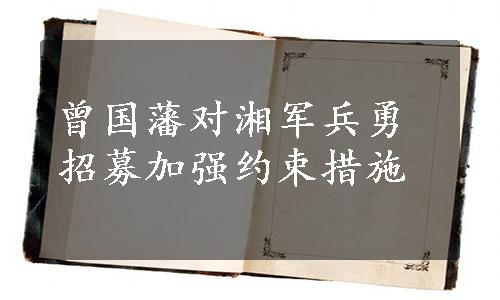 曾国藩对湘军兵勇
招募加强约束措施